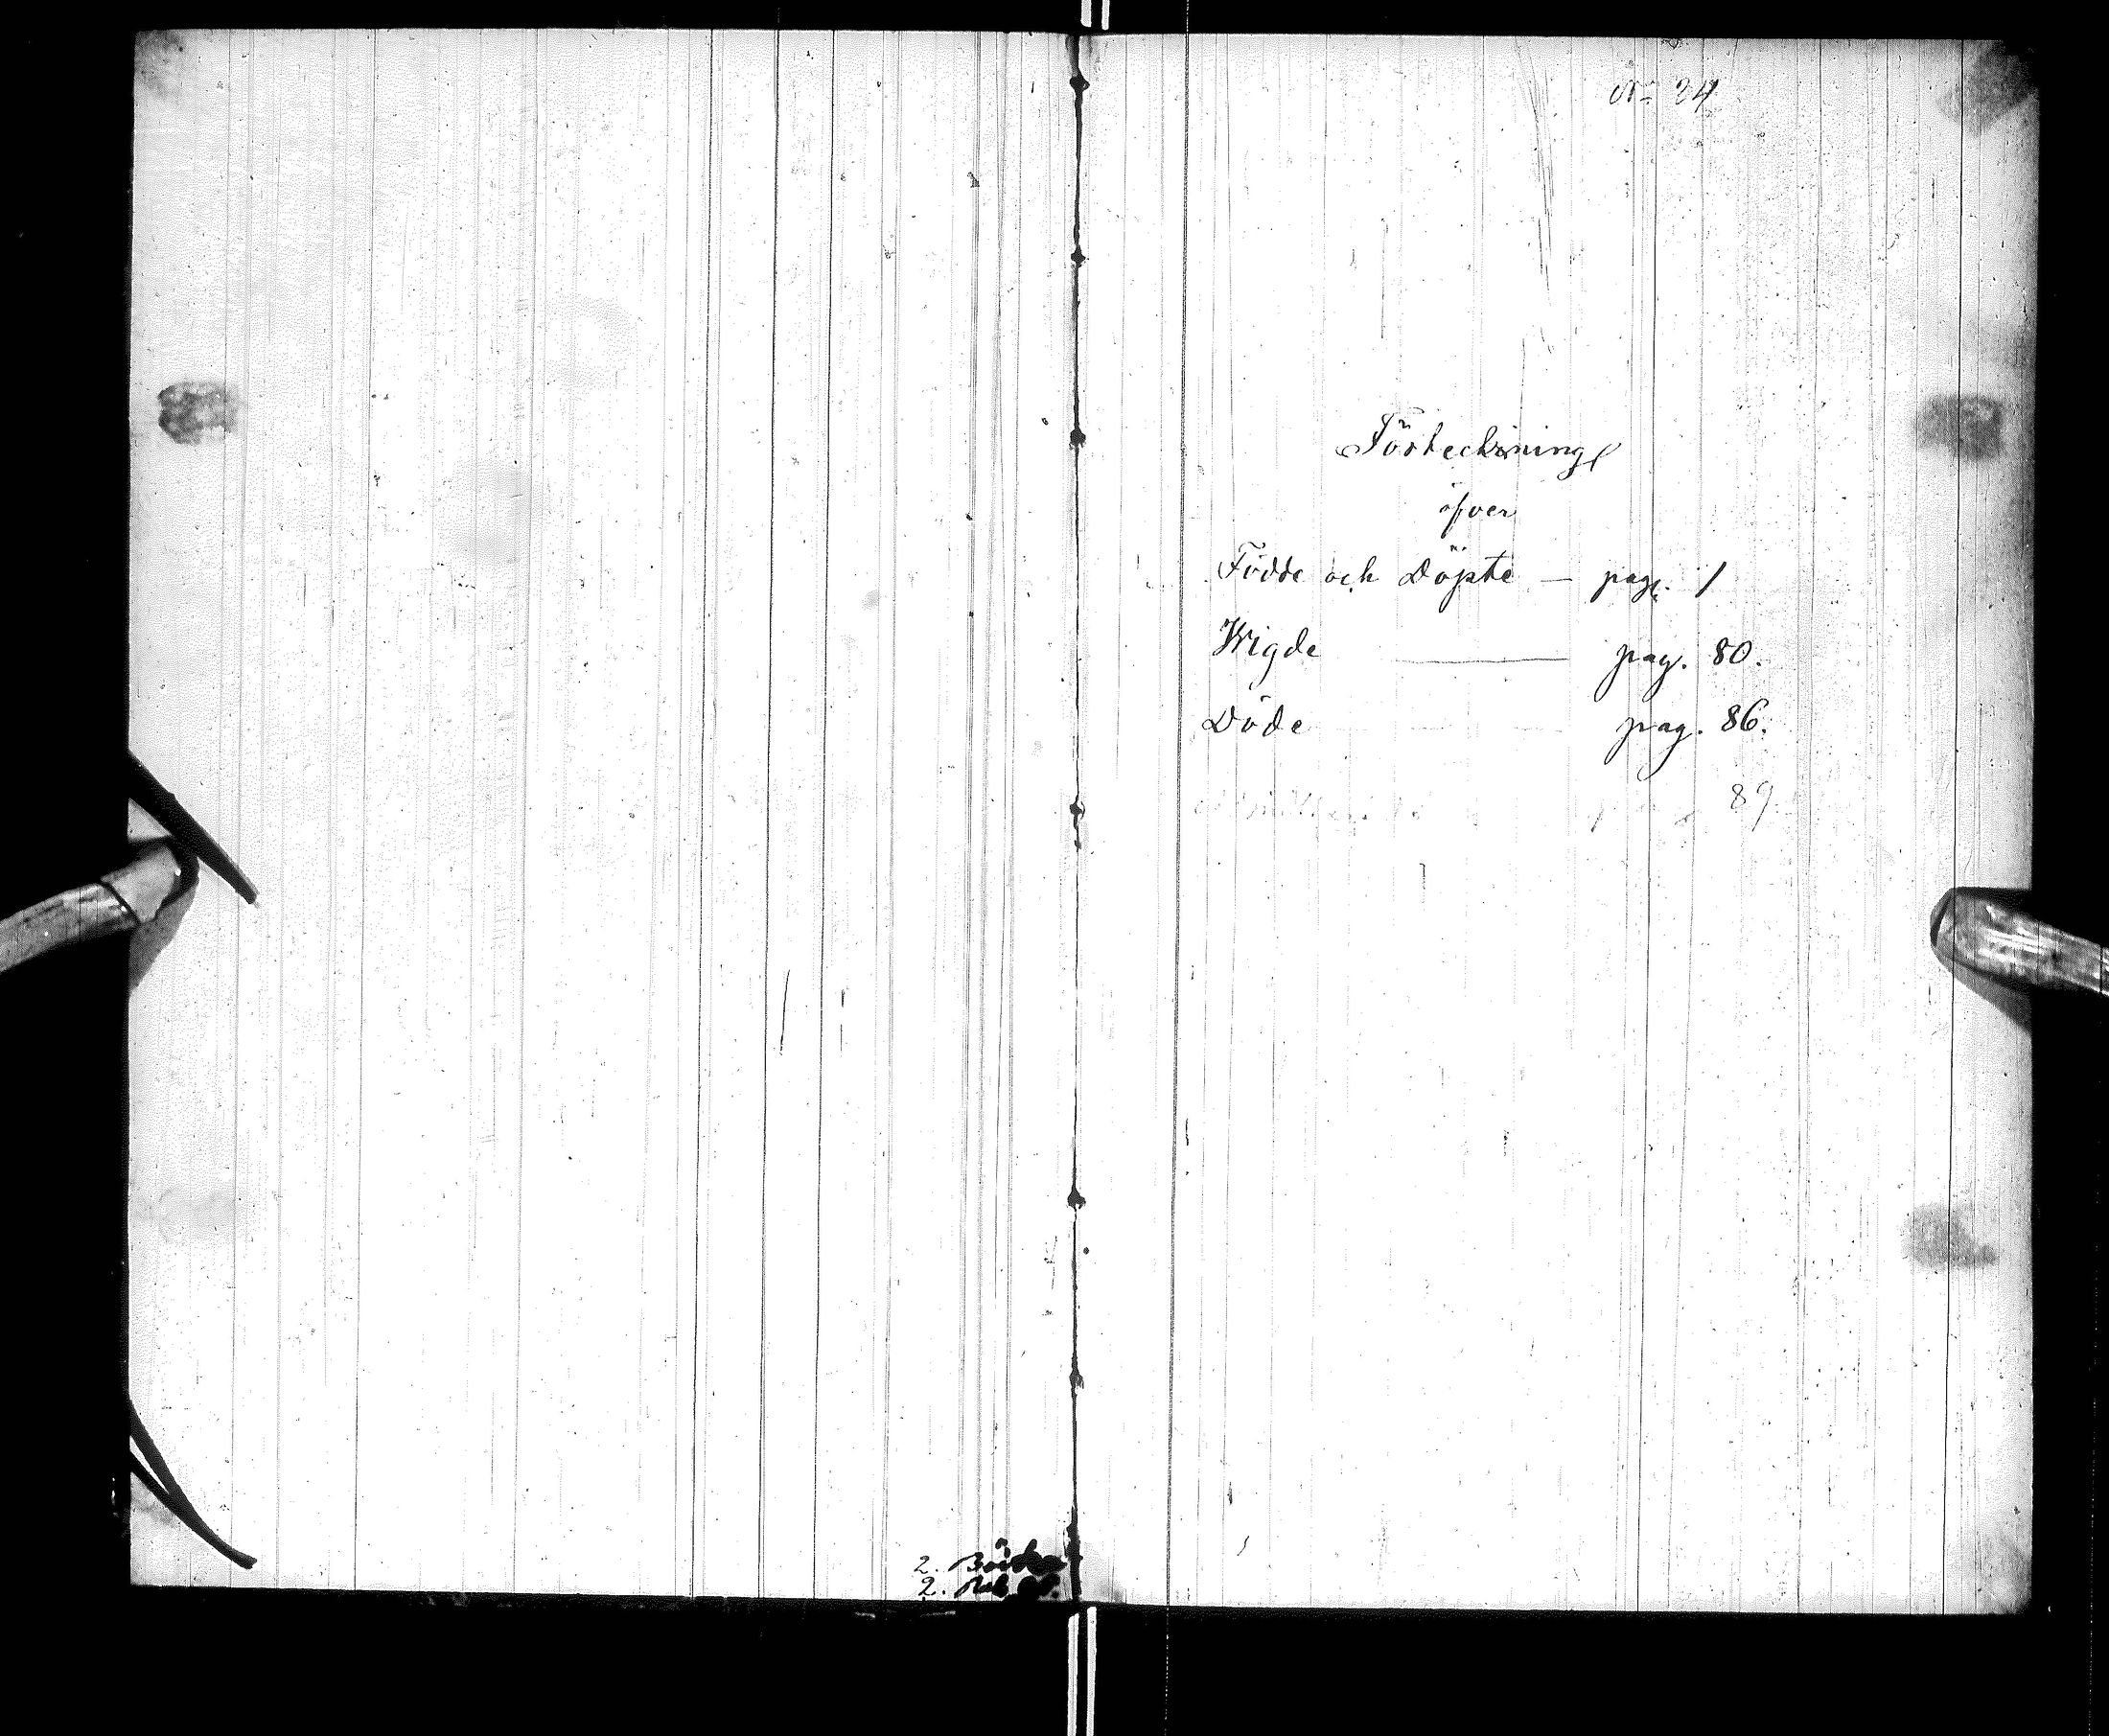 2. Böcker
2.
No 24
Förteckning
öfver
Födde och Döpte — pag. 1
Wigde — pag. 80.
Döde — pag. 86.
89